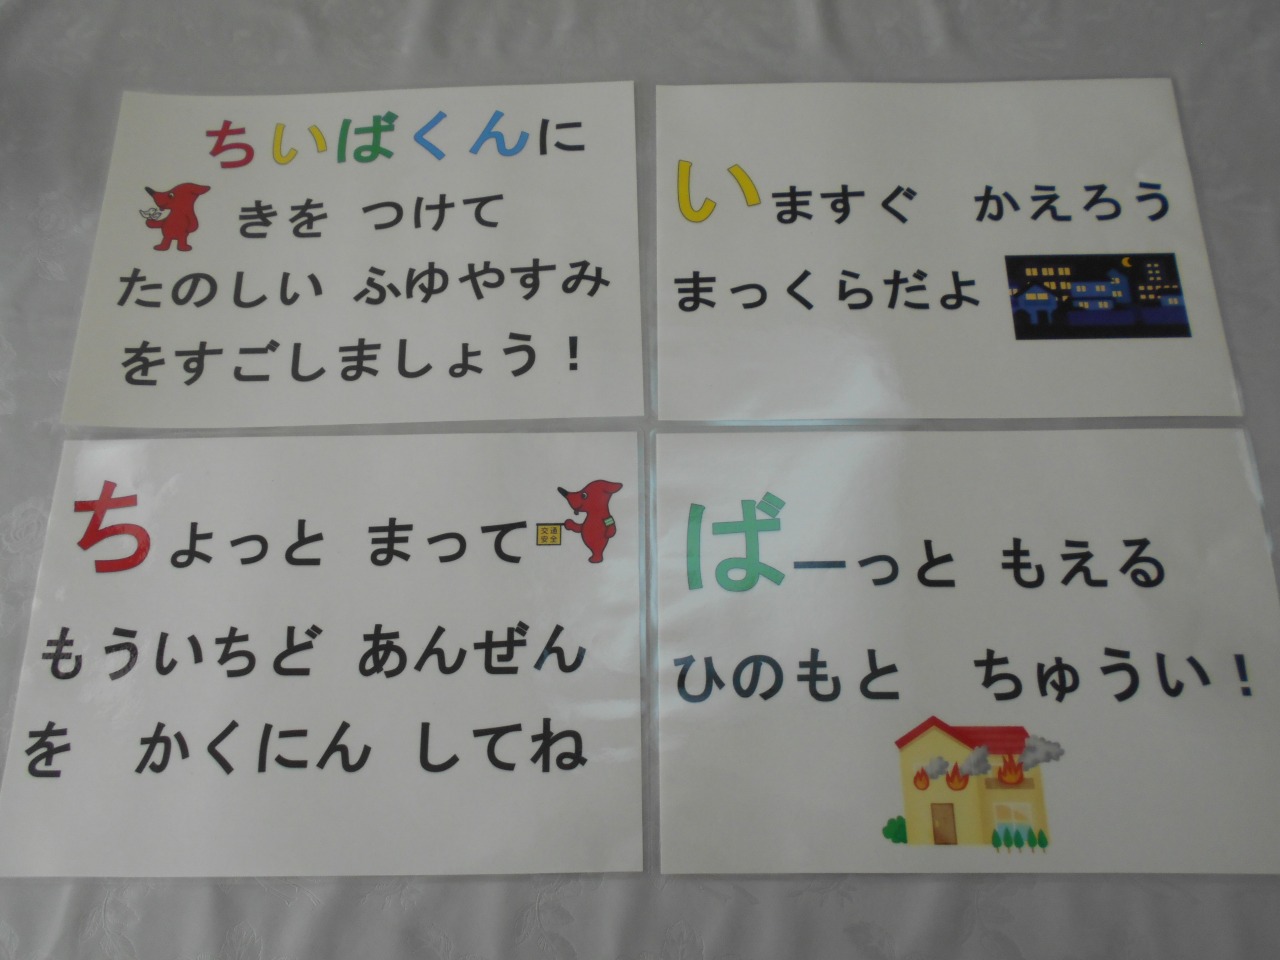 ちいばくんに
きを つけて
たのしい ふゆやすみ
をすごしましょう！
いますぐ かえろう
まっくらだよ
ちょっと まって
交通
安全
もういちど あんぜん
を かくにん してね
ばーっと もえる
ひのもと ちゅうい！